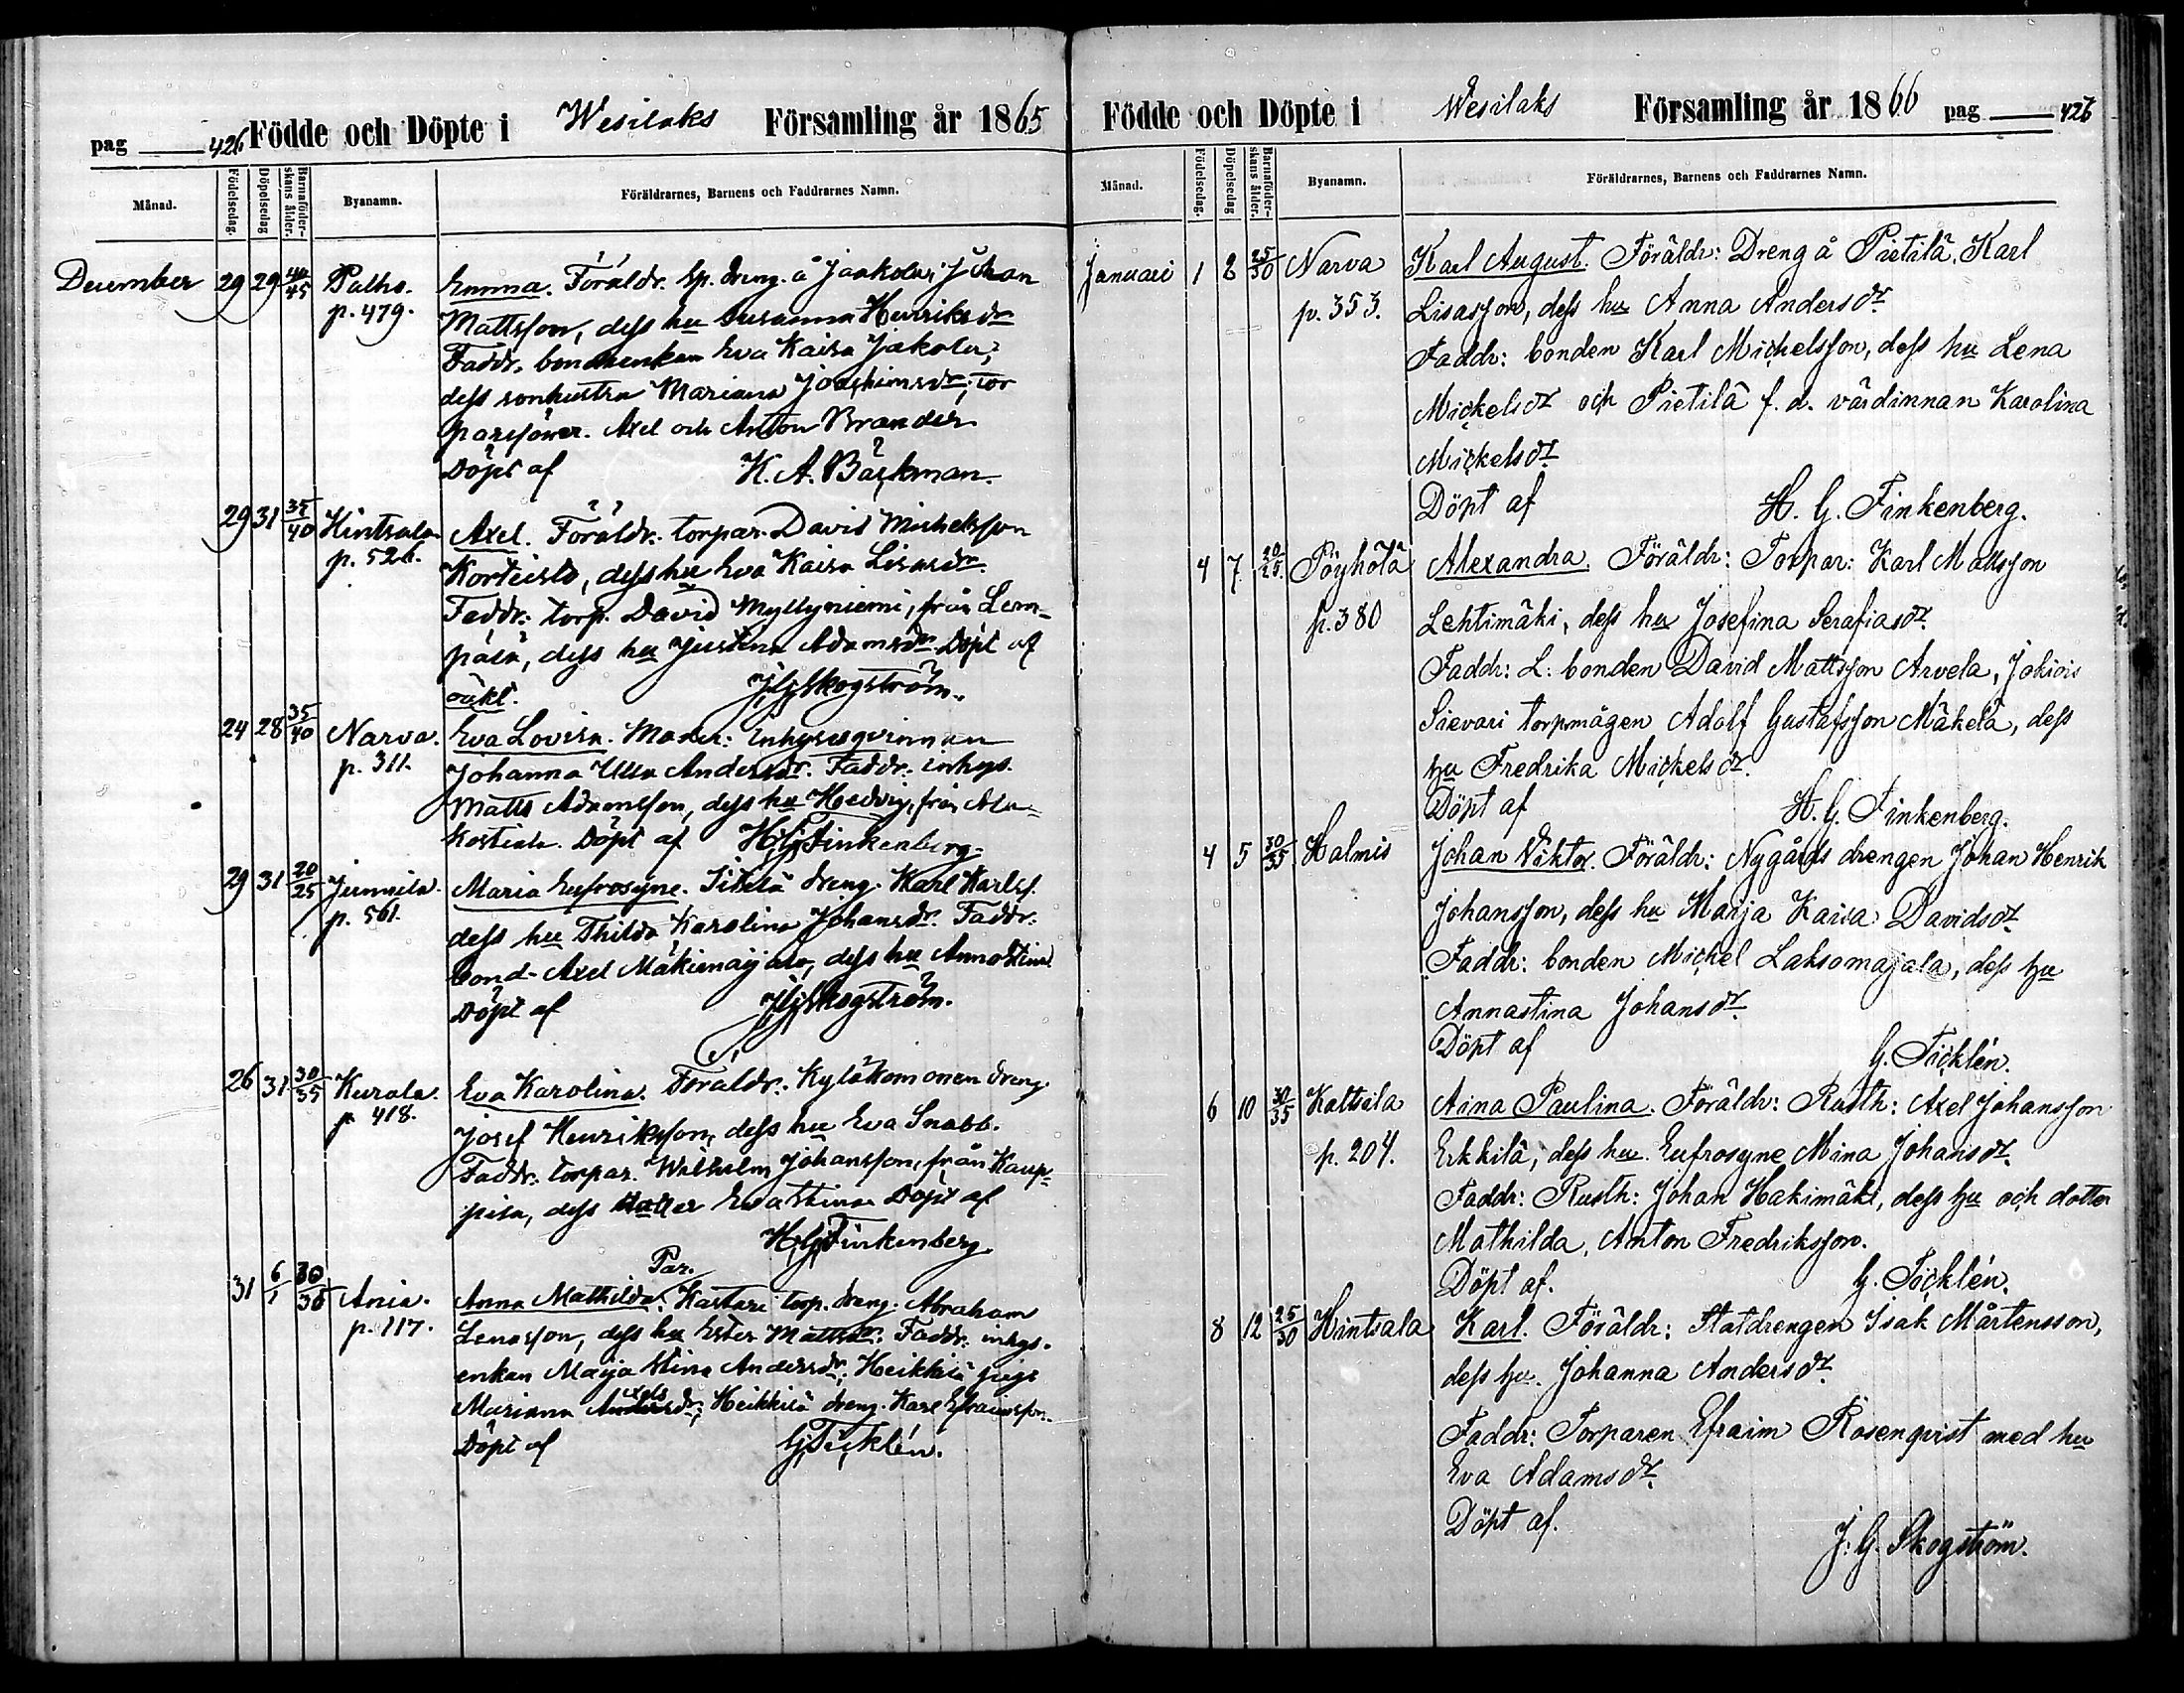 pag 426 Födde och Döpte i Wesilaks Församling år 1865
Månad. Födelsedag. Döpelsedag Barnaföderskans ålder. Byanamn. Föräldrarnes, Barnens och Faddrarnes Namn.
December 29 29 40/45 Palho. Emma. Föräldr. Sp. dreng. å Jaakolan Johan
p. 479. Mattsson, dess hu Susanna Henriksdr
Faddr. bondenkan Eva Kaisa Jakola,
dess sonhustru Mariana Joachimsdr, tor
parsöner. Axel och Anton Brander
Döpt af K. A. Bäckman.
29 31 35/40 Hintsala Axel. Föräldr. torpar. David Michelsson
p. 526. Korteisto, dess hu Eva Kaisa Lisasdr.
Faddr: torp. David Myllyniemi, från Lem-
pälä, dess hu Justina Adamsdr. Döpt af
oäkt. J. G. Skogström.
24 28 35/40 Narva. Eva Lovisa. Moder: Inhysesqvinnan
p. 311. Johanna Ulla Andersdr. Faddr. inhys.
Matts Adamsson, dess hu Hedvig, från Ala-
kostiala. Döpt af H. G. Finkenberg.
29 31 20/25 Junnila. Maria Eufrosyne. Sikilä dreng. Karl Karlss.
p. 561. dess hu Thilda Karolina Johansdr. Faddr.
bond. Axel Mäkimaijala, dess hu Annastina
Döpt af J. G. Skogström.
26 31 30/35 Kurala. Eva Karolina. Föräldr. Kyläkomonen dreng.
p 418. Josef Henriksson, dess hu Eva Snabb.
Faddr. torpar. Wilhelm Johansson, från Kaup-
pila, dess Evastina Döpt af
H. G. Finkenberg.
Par.
31 6/1 30/ Ania. Anna Mathilda. Kastari torp. dreng. Abraham
p. 117. Lenasson, dess hu Ester Mattsdr. Faddr. inhys.
enkan Maija Stina Andersdr. Heikkilä pige
Axels
Mariana Andersdr; Heikkilä dreng. Karl Efraimsson.
Döpt af G. Täcklén.
Födde och Döpte i Wesilaks Församling år 1866 pag 427
Månad. Födelsedag. Döpelsedag Barnaföderskans ålder. Byanamn. Föräldrarnes, Barnens och Faddrarnes Namn.
Januari 1 2 25/30 Narva Karl August. Föräldr: Dreng å Pietilä, Karl
p. 353. Lisasson, dess hu Anna Andersdr.
Faddr: bonden Karl Michelsson, dess hu Lena
Mickelsdr och Pietilä f. d. värdinnan Karolina
Mickelsdr
Döpt af H. G. Finkenberg.
4 7 20/25 Pöyhölä Alexandra. Föräldr: Torpar: Karl Mattsson
p. 380 Lehtimäki, dess hu Josefina Serafiasdr.
Faddr: L: bonden David Mattsson Arvela, Jokiois
Sievari torpmågen Adolf Gustafsson Mäkelä, dess
hu Fredrika Mickelsdr.
Döpt af H. G. Finkenberg.
4 5 30/35 Halmis Johan Viktor. Föräldr: Nygårds drengen Johan Henrik
Johansson, dess hu Marja Kaisa Davidsdr.
Faddr: bonden Mickel Laksomajala, dess hu
Annastina Johansdr.
Döpt af G. Täcklén.
6 10 30/35 Kaltsila Aina Paulina. Föräldr: Rusth: Axel Johansson
p. 204. Erkkilä, dess hu Eufrosyne Mina Johansdr.
Faddr: Rusth: Johan Hakimäki, dess hu och dotter
Mathilda, Anton Fredriksson.
Döpt af. G. Täcklén.
8 12 25/30 Hintsala Karl. Föräldr: Statdrengen Isak Mårtensson,
dess hu. Johanna Andersdr.
Faddr: Torparen Efraim Rosenqvist med hu
Eva Adamsdr.
Döpt af. J. G. Skogström.